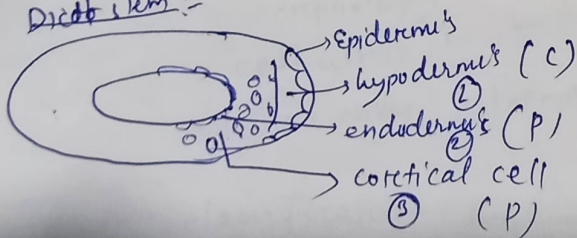 Dicot stem :-
Epidermis
hypodermis (C)
①
endodermis (P)
②
cortical cell
③ (P)